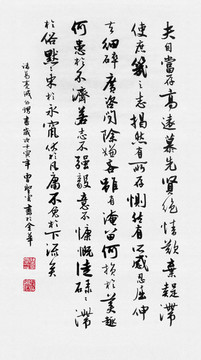 夫目當存高遠慕先賢絕情欲棄疑滯
使庶幾之志揭然有所存惻然有所感忍屈伸
去細碎廣咨問除嫌吝雖有淹留何損於美趣
何患於不濟若志不強毅意不慷慨徒碌々滯
於俗默々束於永竄伏於凡庸不免於下流矣
諸葛亮誡外甥書歲次壬寅年 書於金華